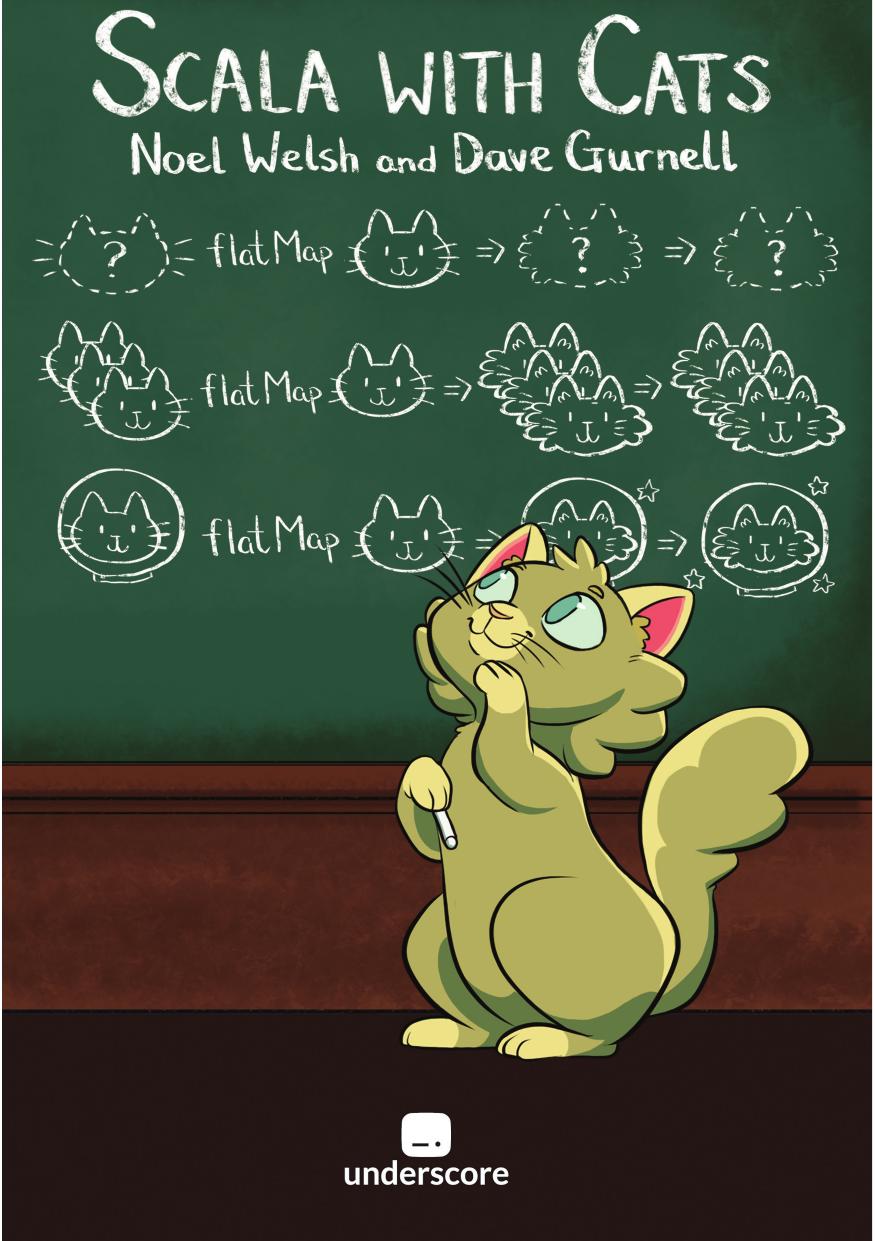 Scala with Cats
Noel Welsh and Dave Gurnell
? flatMap ⇒ ? ⇒ ?
flatMap ⇒ ⇒
flatMap ⇒ ⇒
underscore